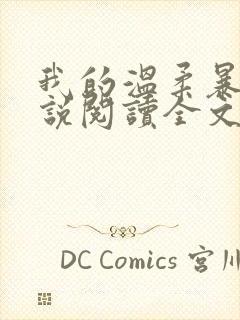 我的溫柔暴
說閱讀全文
DC Comics 宮川